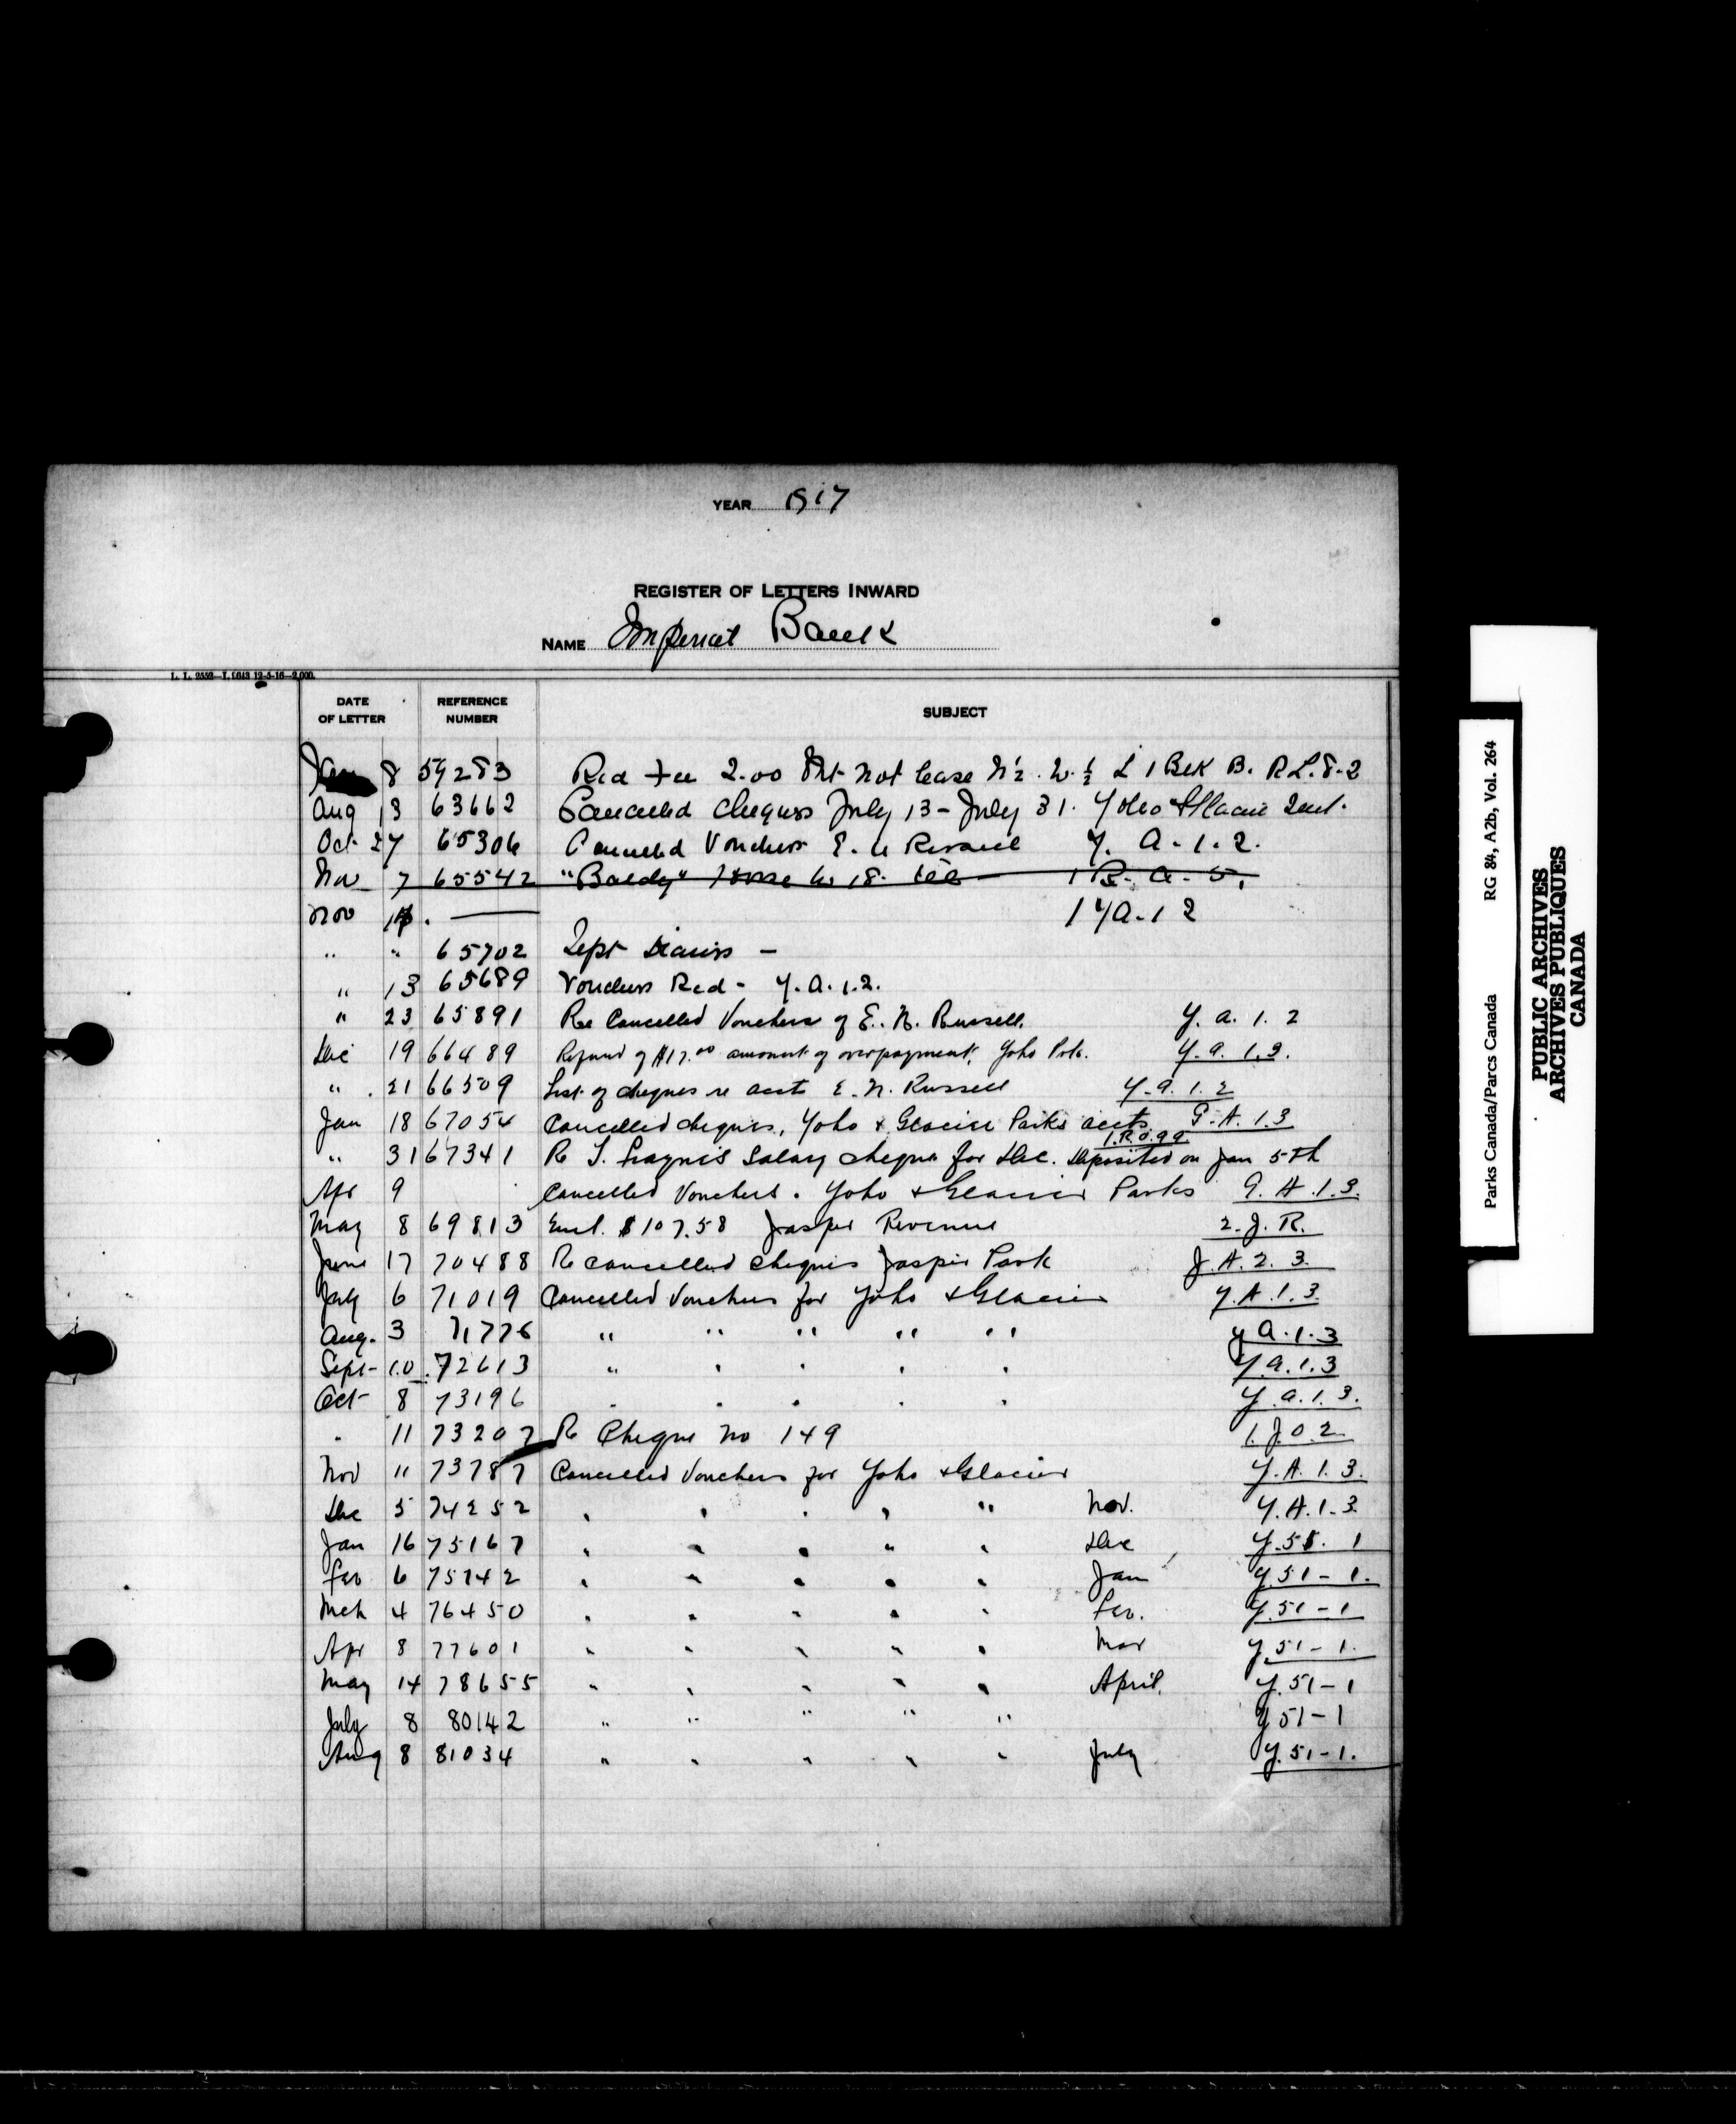 YEAR 1917
REGISTER OF LETTERS INWARD
NAME Imperial Bank
L. L. 2552—I. 1643 12-5-16—2,000.
DATE OF LETTER REFERENCE NUMBER SUBJECT
Jan 8 59283 Red Fee 2.00 not lease N½ W ½ L 1 Blk B. R L. 8-2
Aug 13 63662 Cancelled Cheques July 13 - July 31. Yoho & Glacier
Oct 27 65306 Cancelled Vouchers E. N Russell Y. A. 1. 2.
Nov 7 65542 "Baldy" 18. 1 R. A. 5.
Nov 1 1 Y A. 1 2
" " 65702 Sept —
" 13 65689 Vouchers Red - Y. A. 1. 2.
" 23 65891 Re Cancelled Vouchers of E. N. Russell. Y. a. 1. 2
Dec 19 66489 Refund of $17.00 amount of overpayment, Yoho Prk. Y. a. 1. 3.
" 21 66509 List of cheques re acct E. N. Russell Y. a. 1. 2
Jan 18 67054 Cancelled cheques, Yoho & Glacier Parks accts G. A. 1. 3
1. R. O. 99
" 31 67341 Re Salary cheque for Dec. Deposited on Jan 5th
Apr 9 Cancelled Vouchers. Yoho & Glacier Parks G. A. 1. 3.
May 8 69813 Encl. $107.58 Jasper Revenue 2. J. R.
June 17 70488 Re cancelled cheques Jasper Park J. A. 2. 3.
July 6 71019 Cancelled Vouchers for Yoho & Glacier Y. A. 1. 3
Aug. 3 71776 " " " " " Y A. 1. 3
Sept 10 72613 " " " " " Y. a. 1. 3
Oct 8 73196 " " " " " Y. a. 1. 3.
" 11 73207 Re Cheque No 149 1. J. O. 2.
Nov 11 73787 Cancelled Vouchers for Yoho & Glacier Y. A. 1. 3.
Dec 5 74252 " " " " " Nov. Y. A. 1. 3
Jan 16 75167 " " " " " Dec Y. 51. 1
Feb 6 75742 " " " " " Jan Y. 51 - 1.
Mch 4 76450 " " " " " Feb. Y. 51 - 1
Apr 8 77601 " " " " " Mar Y. 51 - 1.
May 14 78655 " " " " " April. Y. 51 - 1
July 8 80142 " " " " " Y 51 - 1
Aug 8 81034 " " " " " July Y. 51 - 1.
Parks Canada/Parcs Canada RG 84, A2b, Vol. 264
PUBLIC ARCHIVES
ARCHIVES PUBLIQUES
CANADA